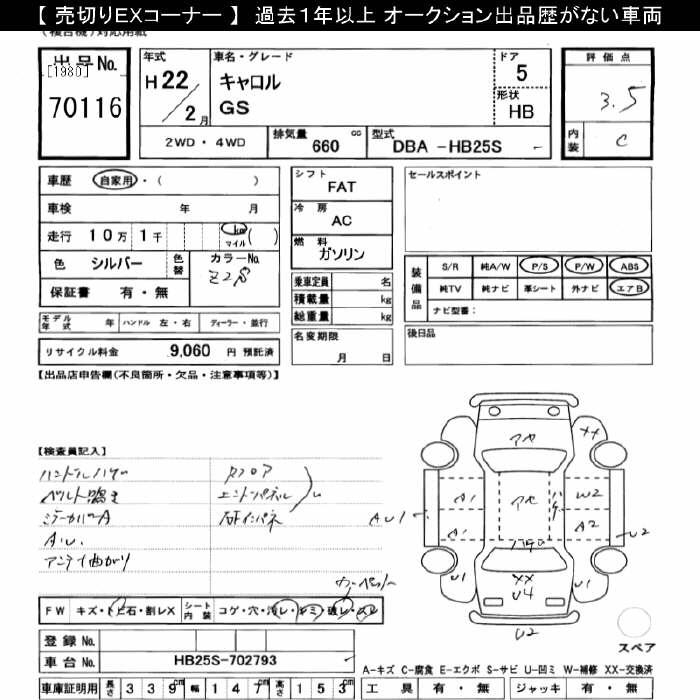 【 売切りEXコーナー 】 過去１年以上 オークション出品歴がない車両
出品No.
[1980]
70116
年式
H22/2月
車名・グレード
キャロル
GS
ドア
5
形状
HB
評価点
3.5
内装
C
2WD・4WD
排気量
660
cc
型式
DBA -HB25S
車歴 自家用・( )
車検 年 月
走行 10万1千 km マイル ( )
色 シルバー
色替
カラーNo.
Z2S
保証書 有・無
シフト
FAT
冷房
AC
燃料
ガソリン
セールスポイント
乗車定員 名
積載量 kg
総重量 kg
装備品
S/R 純A/W P/S P/W ABS
純TV 純ナビ 革シート 外ナビ エアB
ナビ型番：
モデル年式 年 ハンドル 左・右 ディーラー・並行
リサイクル料金 9,060 円 預託済
名変期限
月 日
後日品
【出品店申告欄(不良箇所・欠品・注意事項等)】
【検査員記入】
ベルト鳴き
アンテナ曲がり
フロア
エンドパネル
カーペット
アセ
XX
アセ
A1
W2
A1
A2
AU1
U2
XX
U4
U1
U1
U2
FW キズ・トビ石・割レX
シート内装
コゲ・穴・汚レ・シミ・破レ・スレ
スペア
登録No.
車台No. HB25S-702793
A-キズ C-腐食 E-エクボ S-サビ U-凹ミ W-補修 XX-交換済
車庫証明用 長さ 339cm 幅 147cm 高さ 153cm
工具 有・無 ジャッキ 有・無